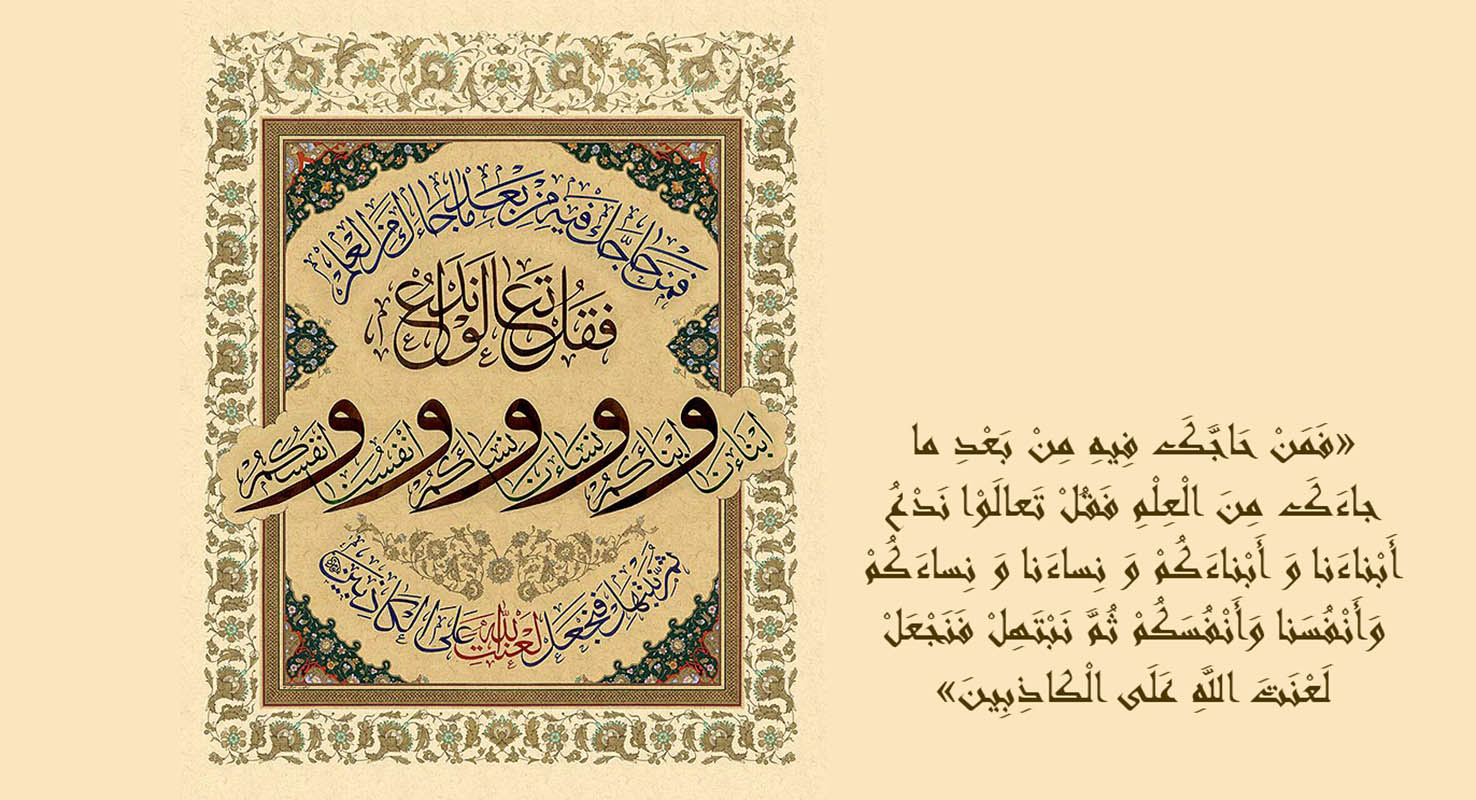 فمن حاجّك فيه من بعد ما جاءك من العلم
فقل تعالوا ندع
ابناءنا و ابناءكم و نساءنا و نساءكم و انفسنا و انفسكم
ثم نبتهل فنجعل لعنت الله على الكاذبين
«فَمَنْ حَاجَّكَ فِيهِ مِنْ بَعْدِ ما
جاءَكَ مِنَ الْعِلْمِ فَقُلْ تَعالَوْا نَدْعُ
أَبْناءَنا وَ أَبْناءَكُمْ وَ نِساءَنا وَ نِساءَكُمْ
وَأَنْفُسَنا وَأَنْفُسَكُمْ ثُمَّ نَبْتَهِلْ فَنَجْعَلْ
لَعْنَتَ اللَّهِ عَلَى الْكاذِبِينَ»